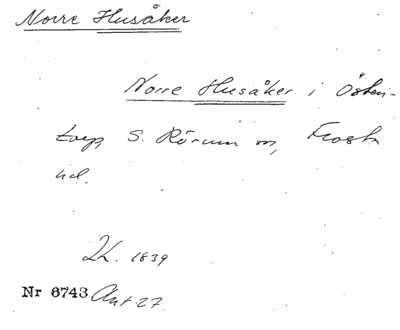 Norre Husåker
Norre Husåker i Östen-
torp, S. Rörum sn, Frosta
hd.
LK. 1839
Nr 6743 Akt 27.